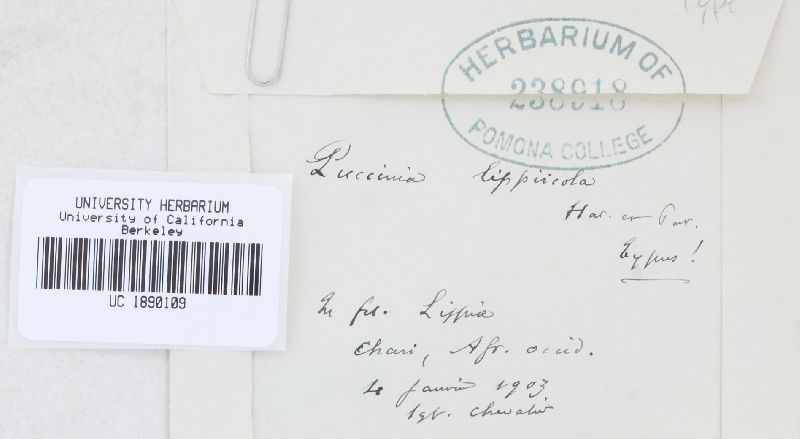 Type
HERBARIUM OF
238918
POMONA COLLEGE
Puccinia lippiicola
Har. et Pat.
typus!
UNIVERSITY HERBARIUM
University of California
Berkeley
UC 1890109
In fol. Lippiae
Chari, Afr. occid.
janvier 1903
lgt. Chevalier